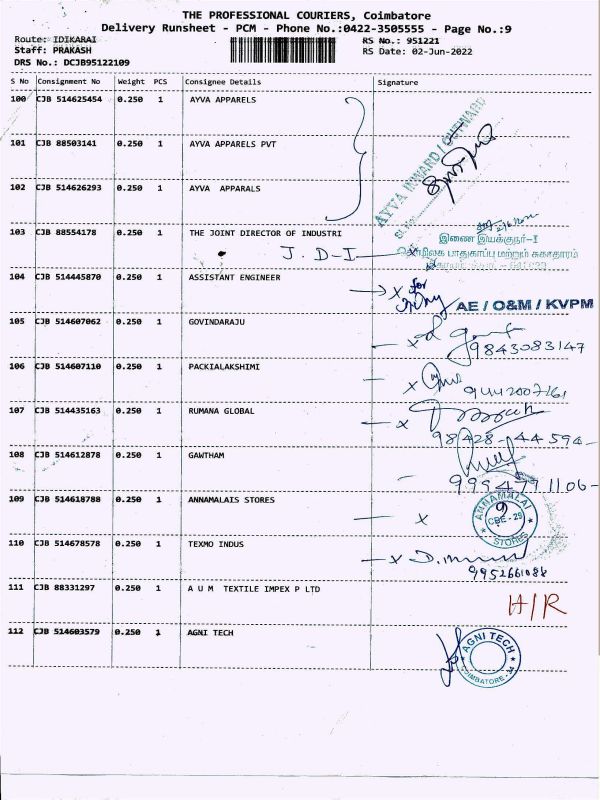 THE PROFESSIONAL COURIERS, Coimbatore
Delivery Runsheet - PCM - Phone No.:0422-3505555 - Page No.:9
Route: IDIKARAI
RS No.: 951221
Staff: PRAKASH
RS Date: 02-Jun-2022
DRS No.: DCJB95122109
S No Consignment No Weight PCS Consignee Details Signature
100 CJB 514625454 0.250 1 AYVA APPARELS
101 CJB 88503141 0.250 1 AYVA APPARELS PVT
AYVA INWARD / OUTWARD
102 CJB 514626293 0.250 1 AYVA APPARALS
103 CJB 88554178 0.250 1 THE JOINT DIRECTOR OF INDUSTRI
J. D-I
இணை இயக்குநர்-I
தொழிலக பாதுகாப்பு மற்றும் சுகாதாரம்
104 CJB 514445870 0.250 1 ASSISTANT ENGINEER
x for
AE / O&M / KVPM
105 CJB 514607062 0.250 1 GOVINDARAJU
x
9843083147
106 CJB 514607110 0.250 1 PACKIALAKSHIMI
x
9442007161
107 CJB 514435163 0.250 1 RUMANA GLOBAL
x
98428-44594-
108 CJB 514612878 0.250 1 GAWTHAM
9994791106-
109 CJB 514618788 0.250 1 ANNAMALAIS STORES
x
ANNAMALAI
CBE-29
STORES
110 CJB 514678578 0.250 1 TEXMO INDUS
x
9952661088
111 CJB 88331297 0.250 1 A U M TEXTILE IMPEX P LTD
H/R
112 CJB 514603579 0.250 1 AGNI TECH
AGNI TECH
COIMBATORE